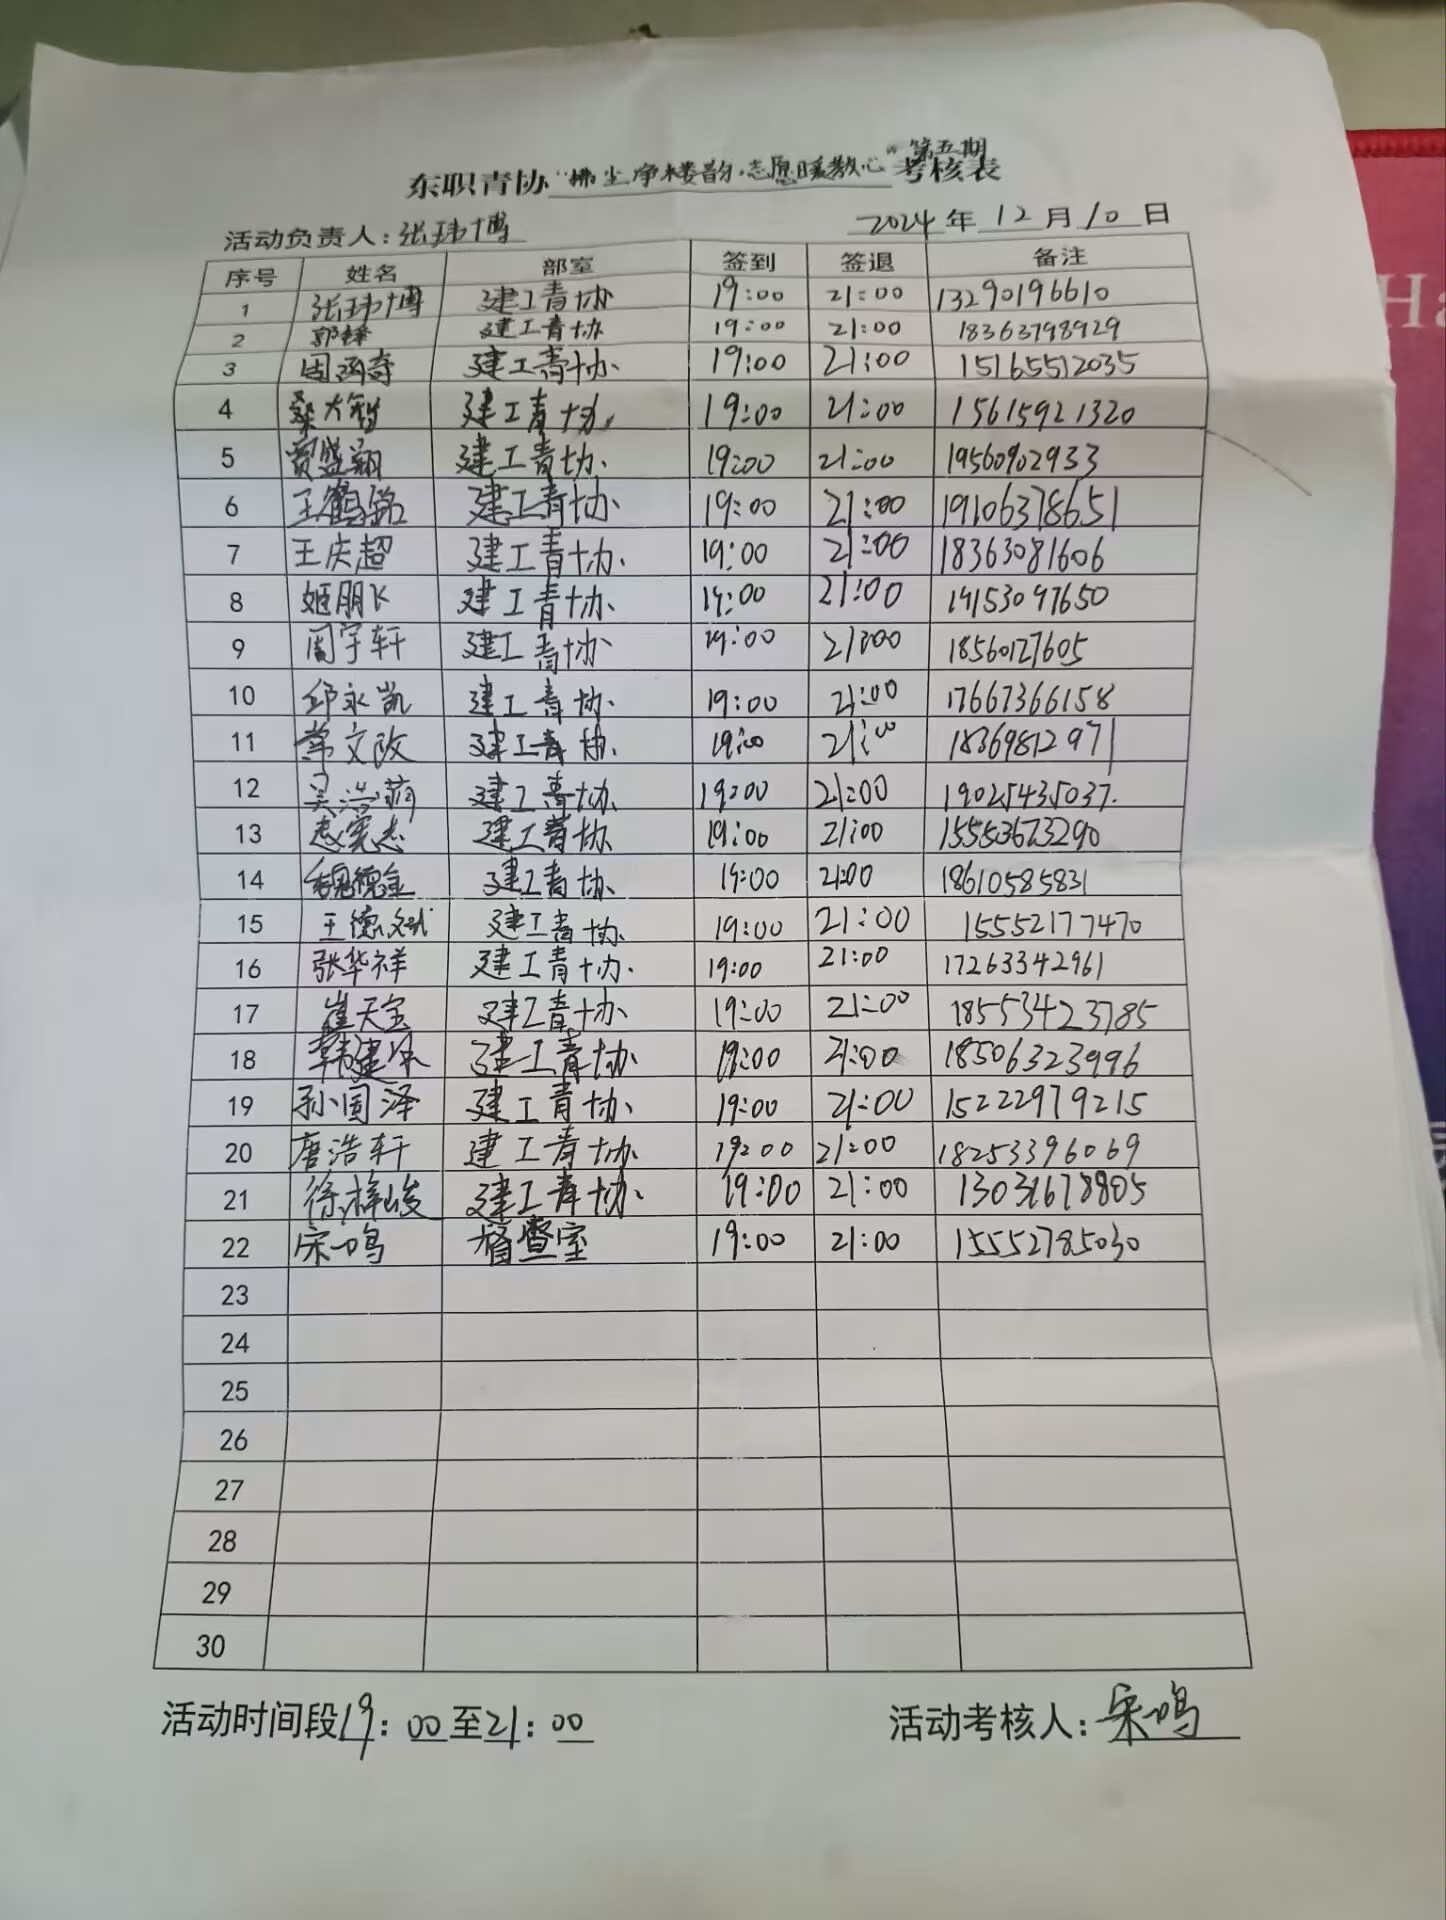 第五期
东职青协"拂尘净楼韵,志愿暖教心"考核表
活动负责人:张玮博 2024年12月10日
序号 姓名 部室 签到 签退 备注
1 张玮博 建工青协 19:00 21:00 13290196610
2 郭锋 建工青协 19:00 21:00 18363798929
3 周函奇 建工青协 19:00 21:00 15165512035
4 桑大智 建工青协 19:00 21:00 15615921320
5 贾盛翔 建工青协 19:00 21:00 19560902933
6 王鹤铭 建工青协 19:00 21:00 19106378651
7 王庆超 建工青协 19:00 21:00 18363081606
8 姬朋飞 建工青协 19:00 21:00 19153097650
9 周宇轩 建工青协 19:00 21:00 18560127605
10 邱永凯 建工青协 19:00 21:00 17667366158
11 常文改 建工青协 19:00 21:00 18369812971
12 吴浩 建工青协 19:00 21:00 19025435037.
13 宪志 建工青协 19:00 21:00 15553673290
14 魏德金 建工青协 19:00 21:00 18610585831
15 王德斌 建工青协 19:00 21:00 15552177470
16 张华祥 建工青协 19:00 21:00 17263342961
17 崔天宝 建工青协 19:00 21:00 18553423785
18 韩建 建工青协 19:00 21:00 18506323996
19 孙国泽 建工青协 19:00 21:00 15222979215
20 唐浩轩 建工青协 19:00 21:00 18253396069
21 徐梓峻 建工青协 19:00 21:00 13031678805
22 宋鸣 督查室 19:00 21:00 15552785030
23
24
25
26
27
28
29
30
活动时间段19:00至21:00 活动考核人:宋鸣
Ha